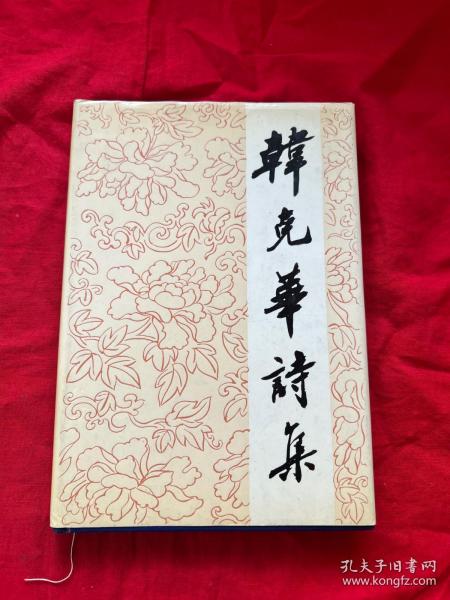 韓克華詩集
孔夫子旧书网
www.kongfz.com